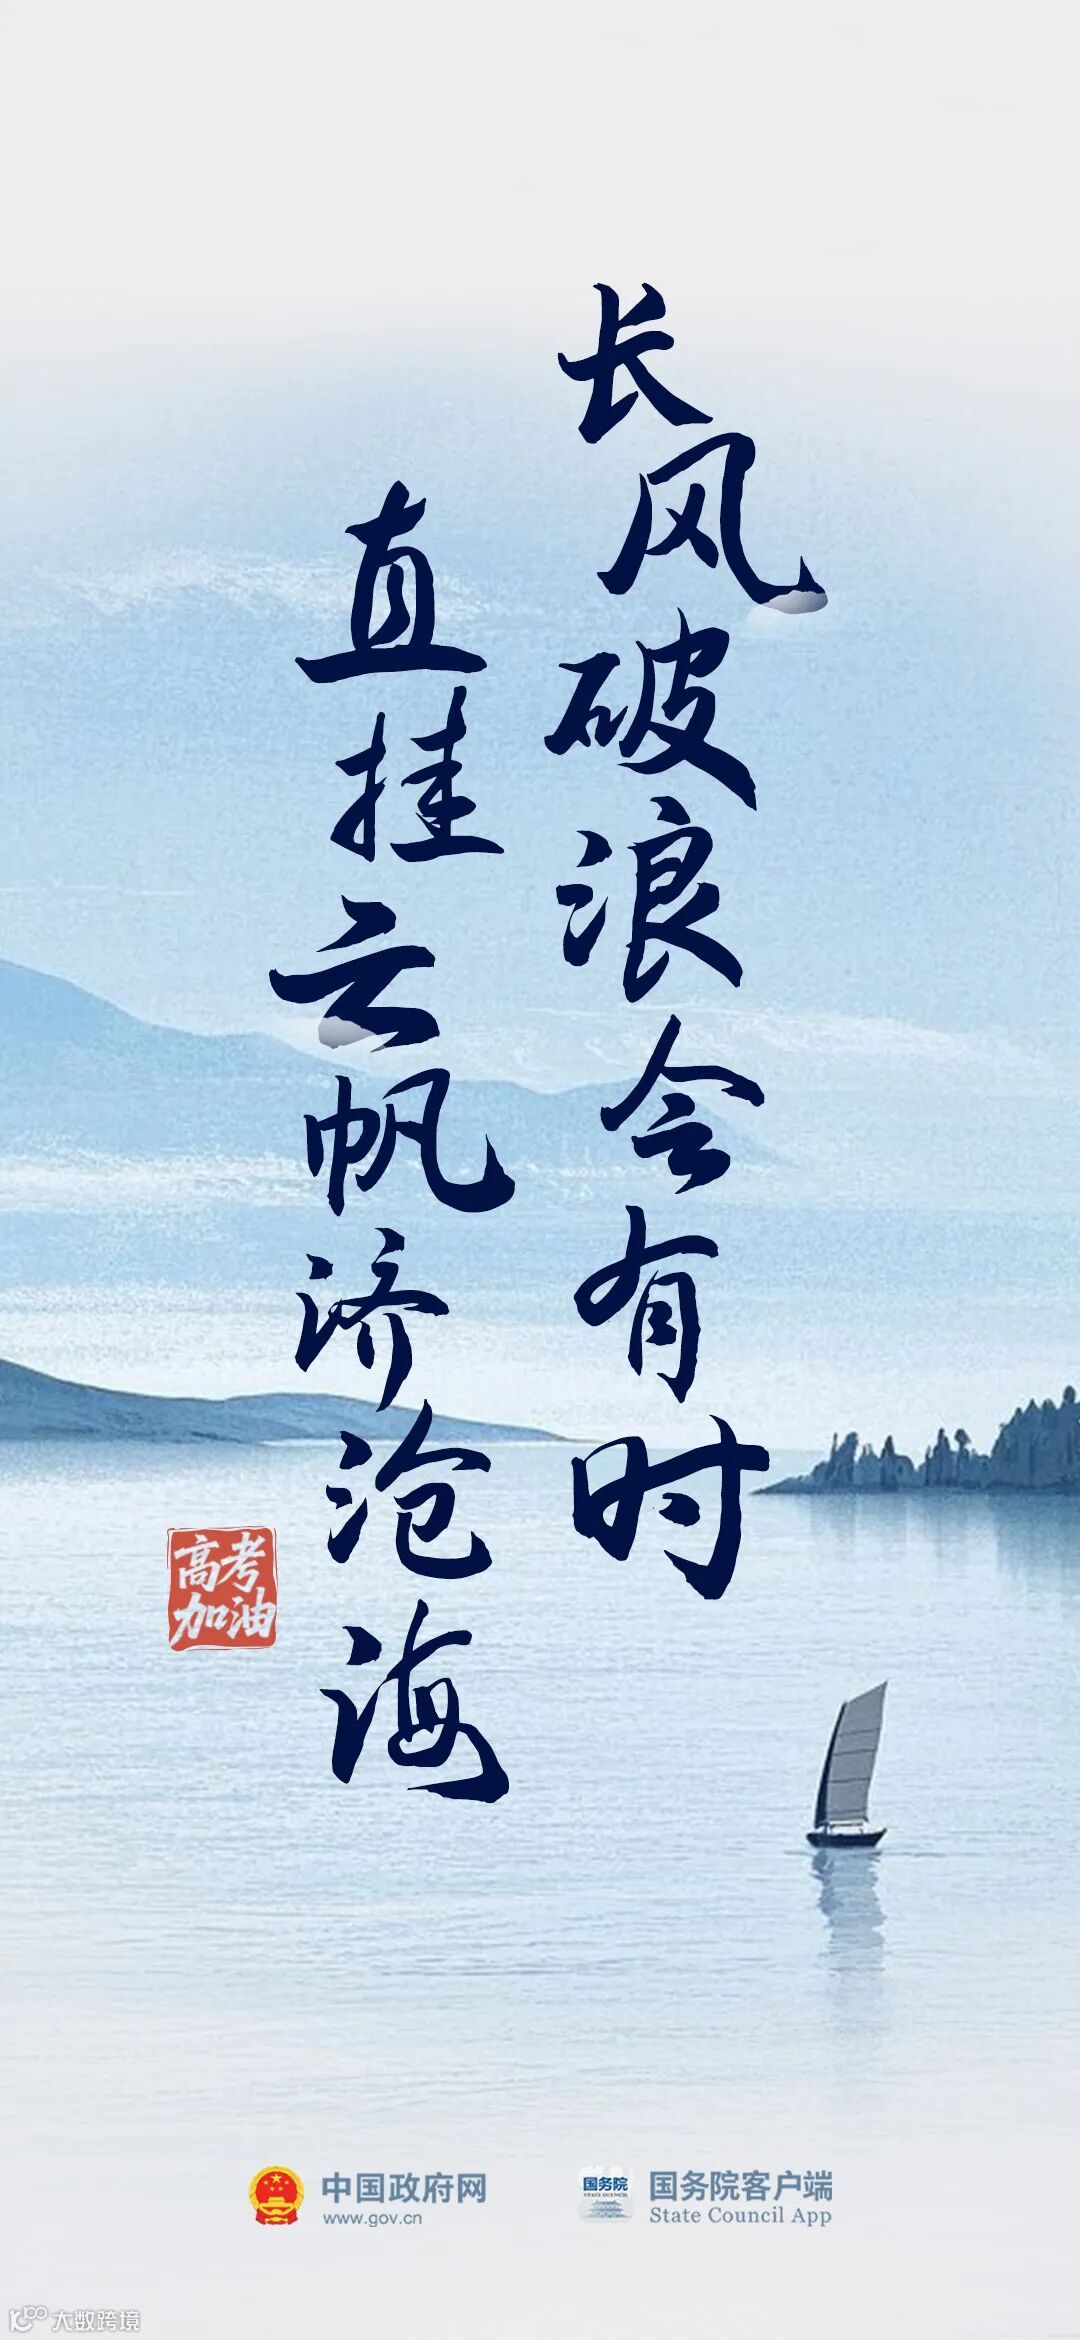 长风破浪会有时
直挂云帆济沧海
高考
加油
中国政府网
www.gov.cn
国务院
STATE COUNCIL
国务院客户端
State Council App
大数跨境